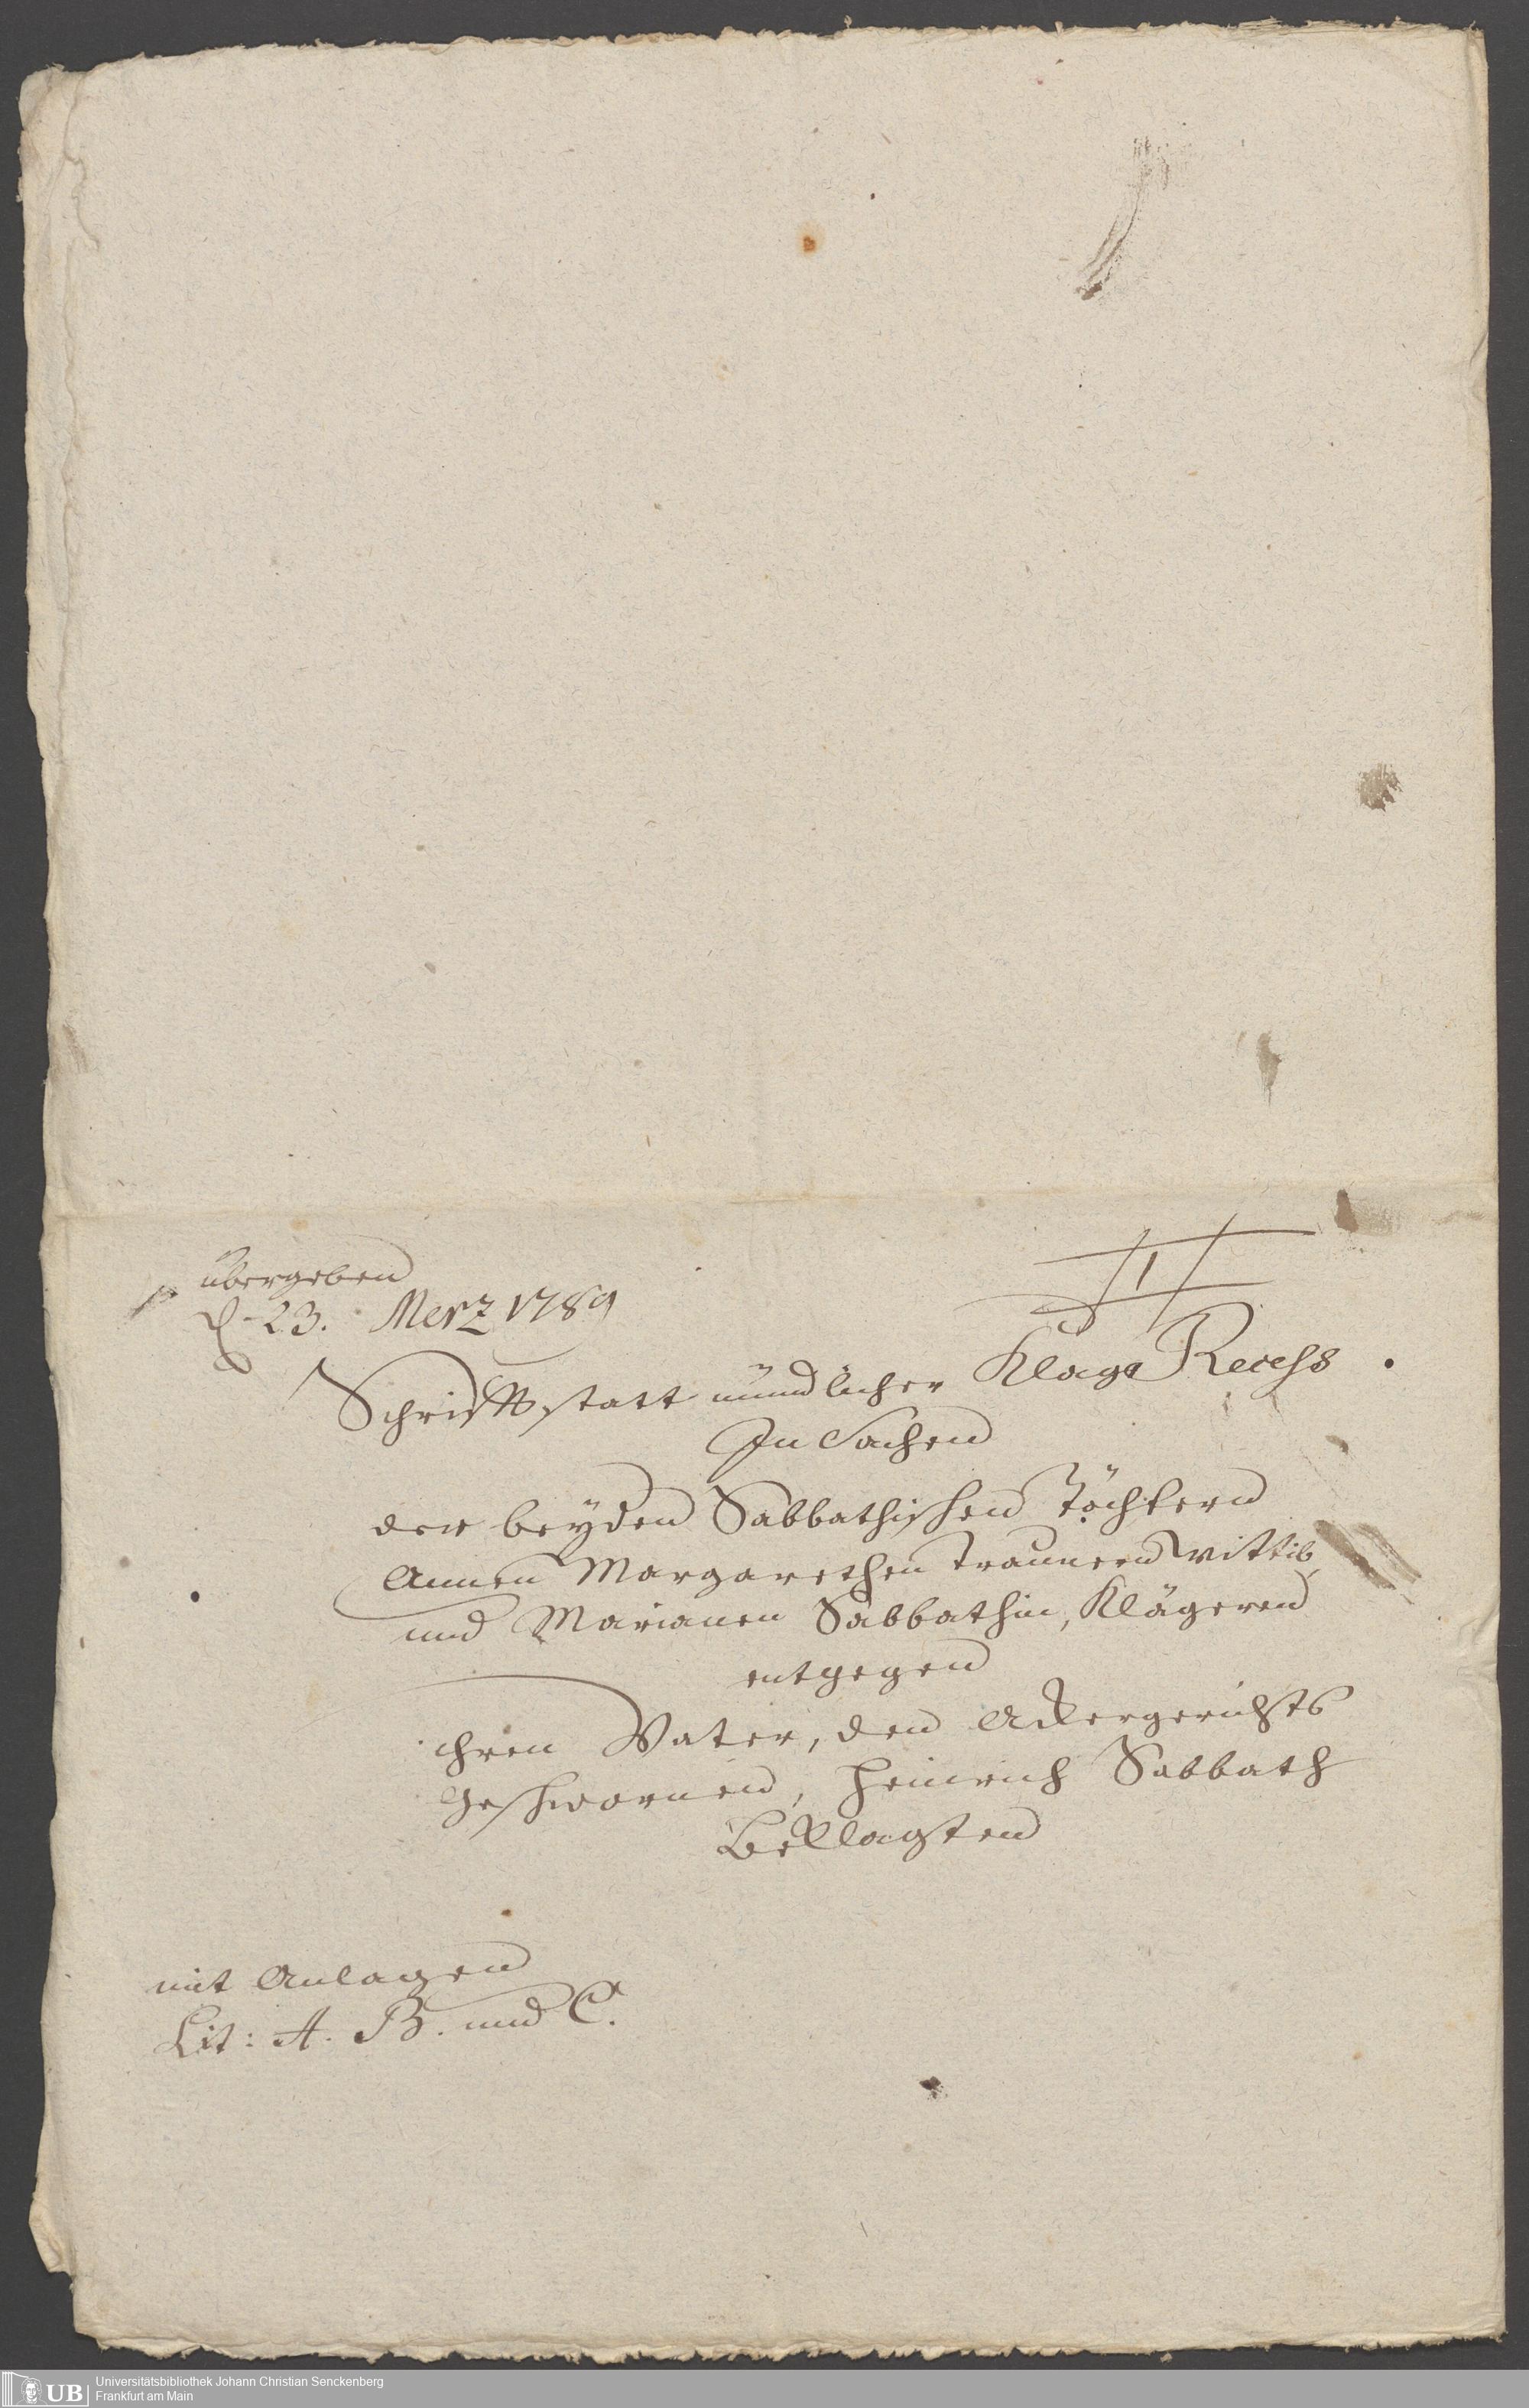 übergeben
d. 23. Merz 1789
1
Schrifft statt mündlicher Klage Recess.
In Sachen
der beyden Sabbathischen Töchtern
Annen Margarethen Wittib
und Marianen Sabbathin, Klägeren
entgegen
ihren Vater, den Ackergerichts
Geschwornen, Heinrich Sabbath
Beklagten
mit Anlagen
Lit: A. B. und C.
UB
Universitätsbibliothek Johann Christian Senckenberg
Frankfurt am Main